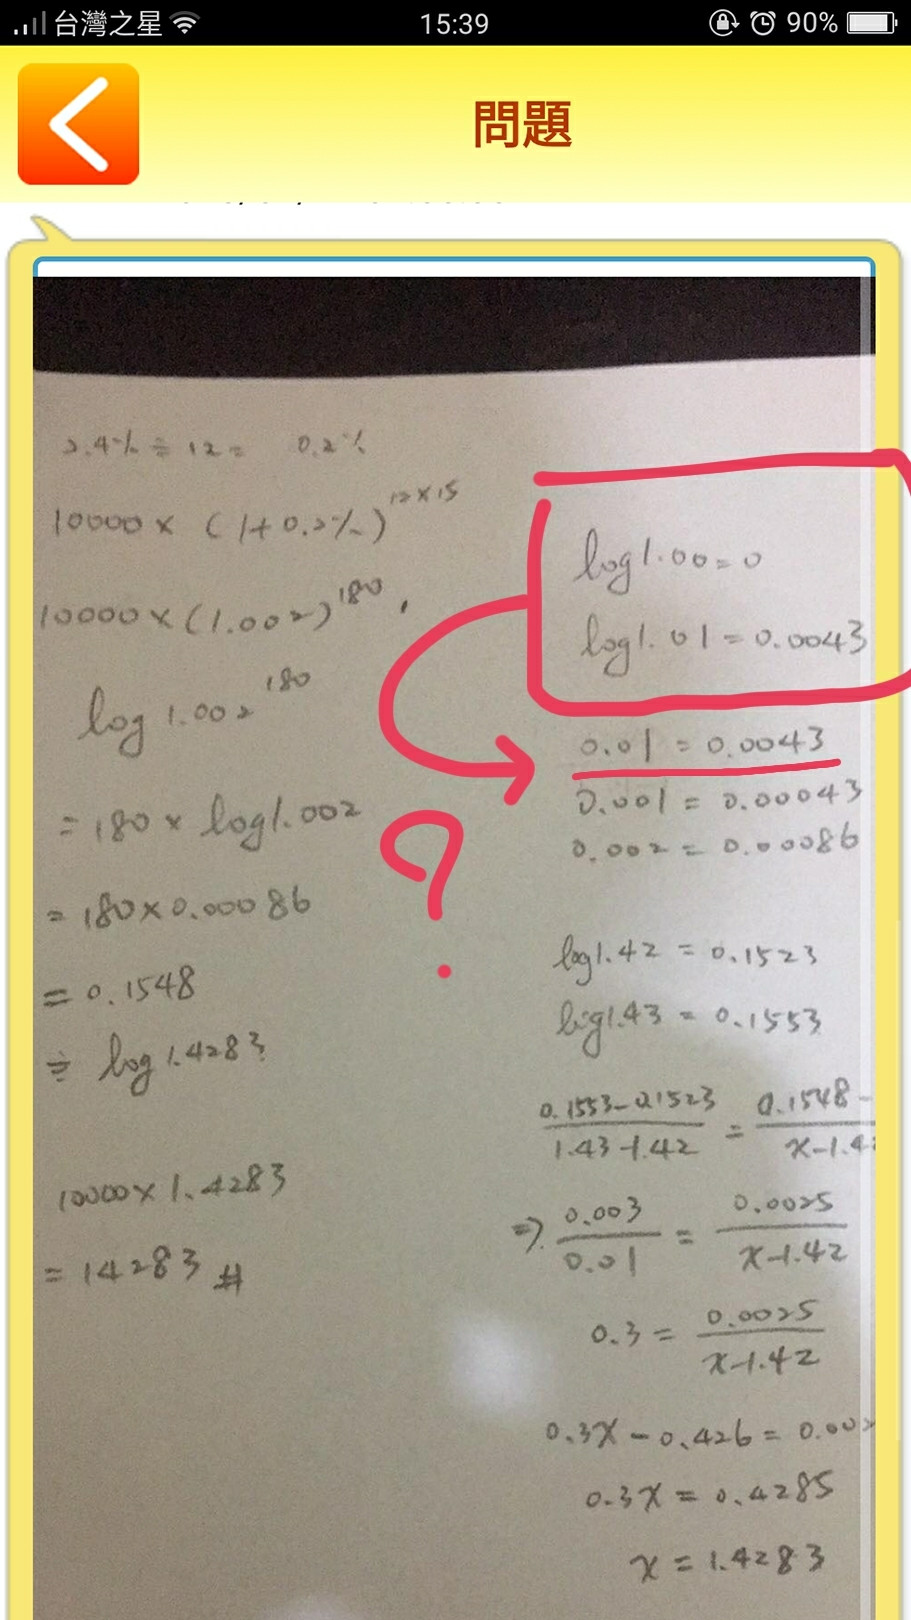 台灣之星
15:39
90%
問題
2.4% ÷ 12 = 0.2%
10000 × (1+0.2%)^{12×15}
10000 × (1.002)^{180}
log 1.002^{180}
= 180 × log1.002
= 180×0.00086
= 0.1548
≑ log 1.4283
10000 × 1.4283
= 14283 #
log1.00 = 0
log1.01 = 0.0043
0.01 = 0.0043
?
0.001 = 0.00043
0.002 = 0.00086
log1.42 = 0.1523
log1.43 = 0.1553
\frac{0.1553-0.1523}{1.43-1.42} = \frac{0.1548-}{x-1.4}
⇒ \frac{0.003}{0.01} = \frac{0.0025}{x-1.42}
0.3 = \frac{0.0025}{x-1.42}
0.3x - 0.426 = 0.00
0.3x = 0.4285
x = 1.4283